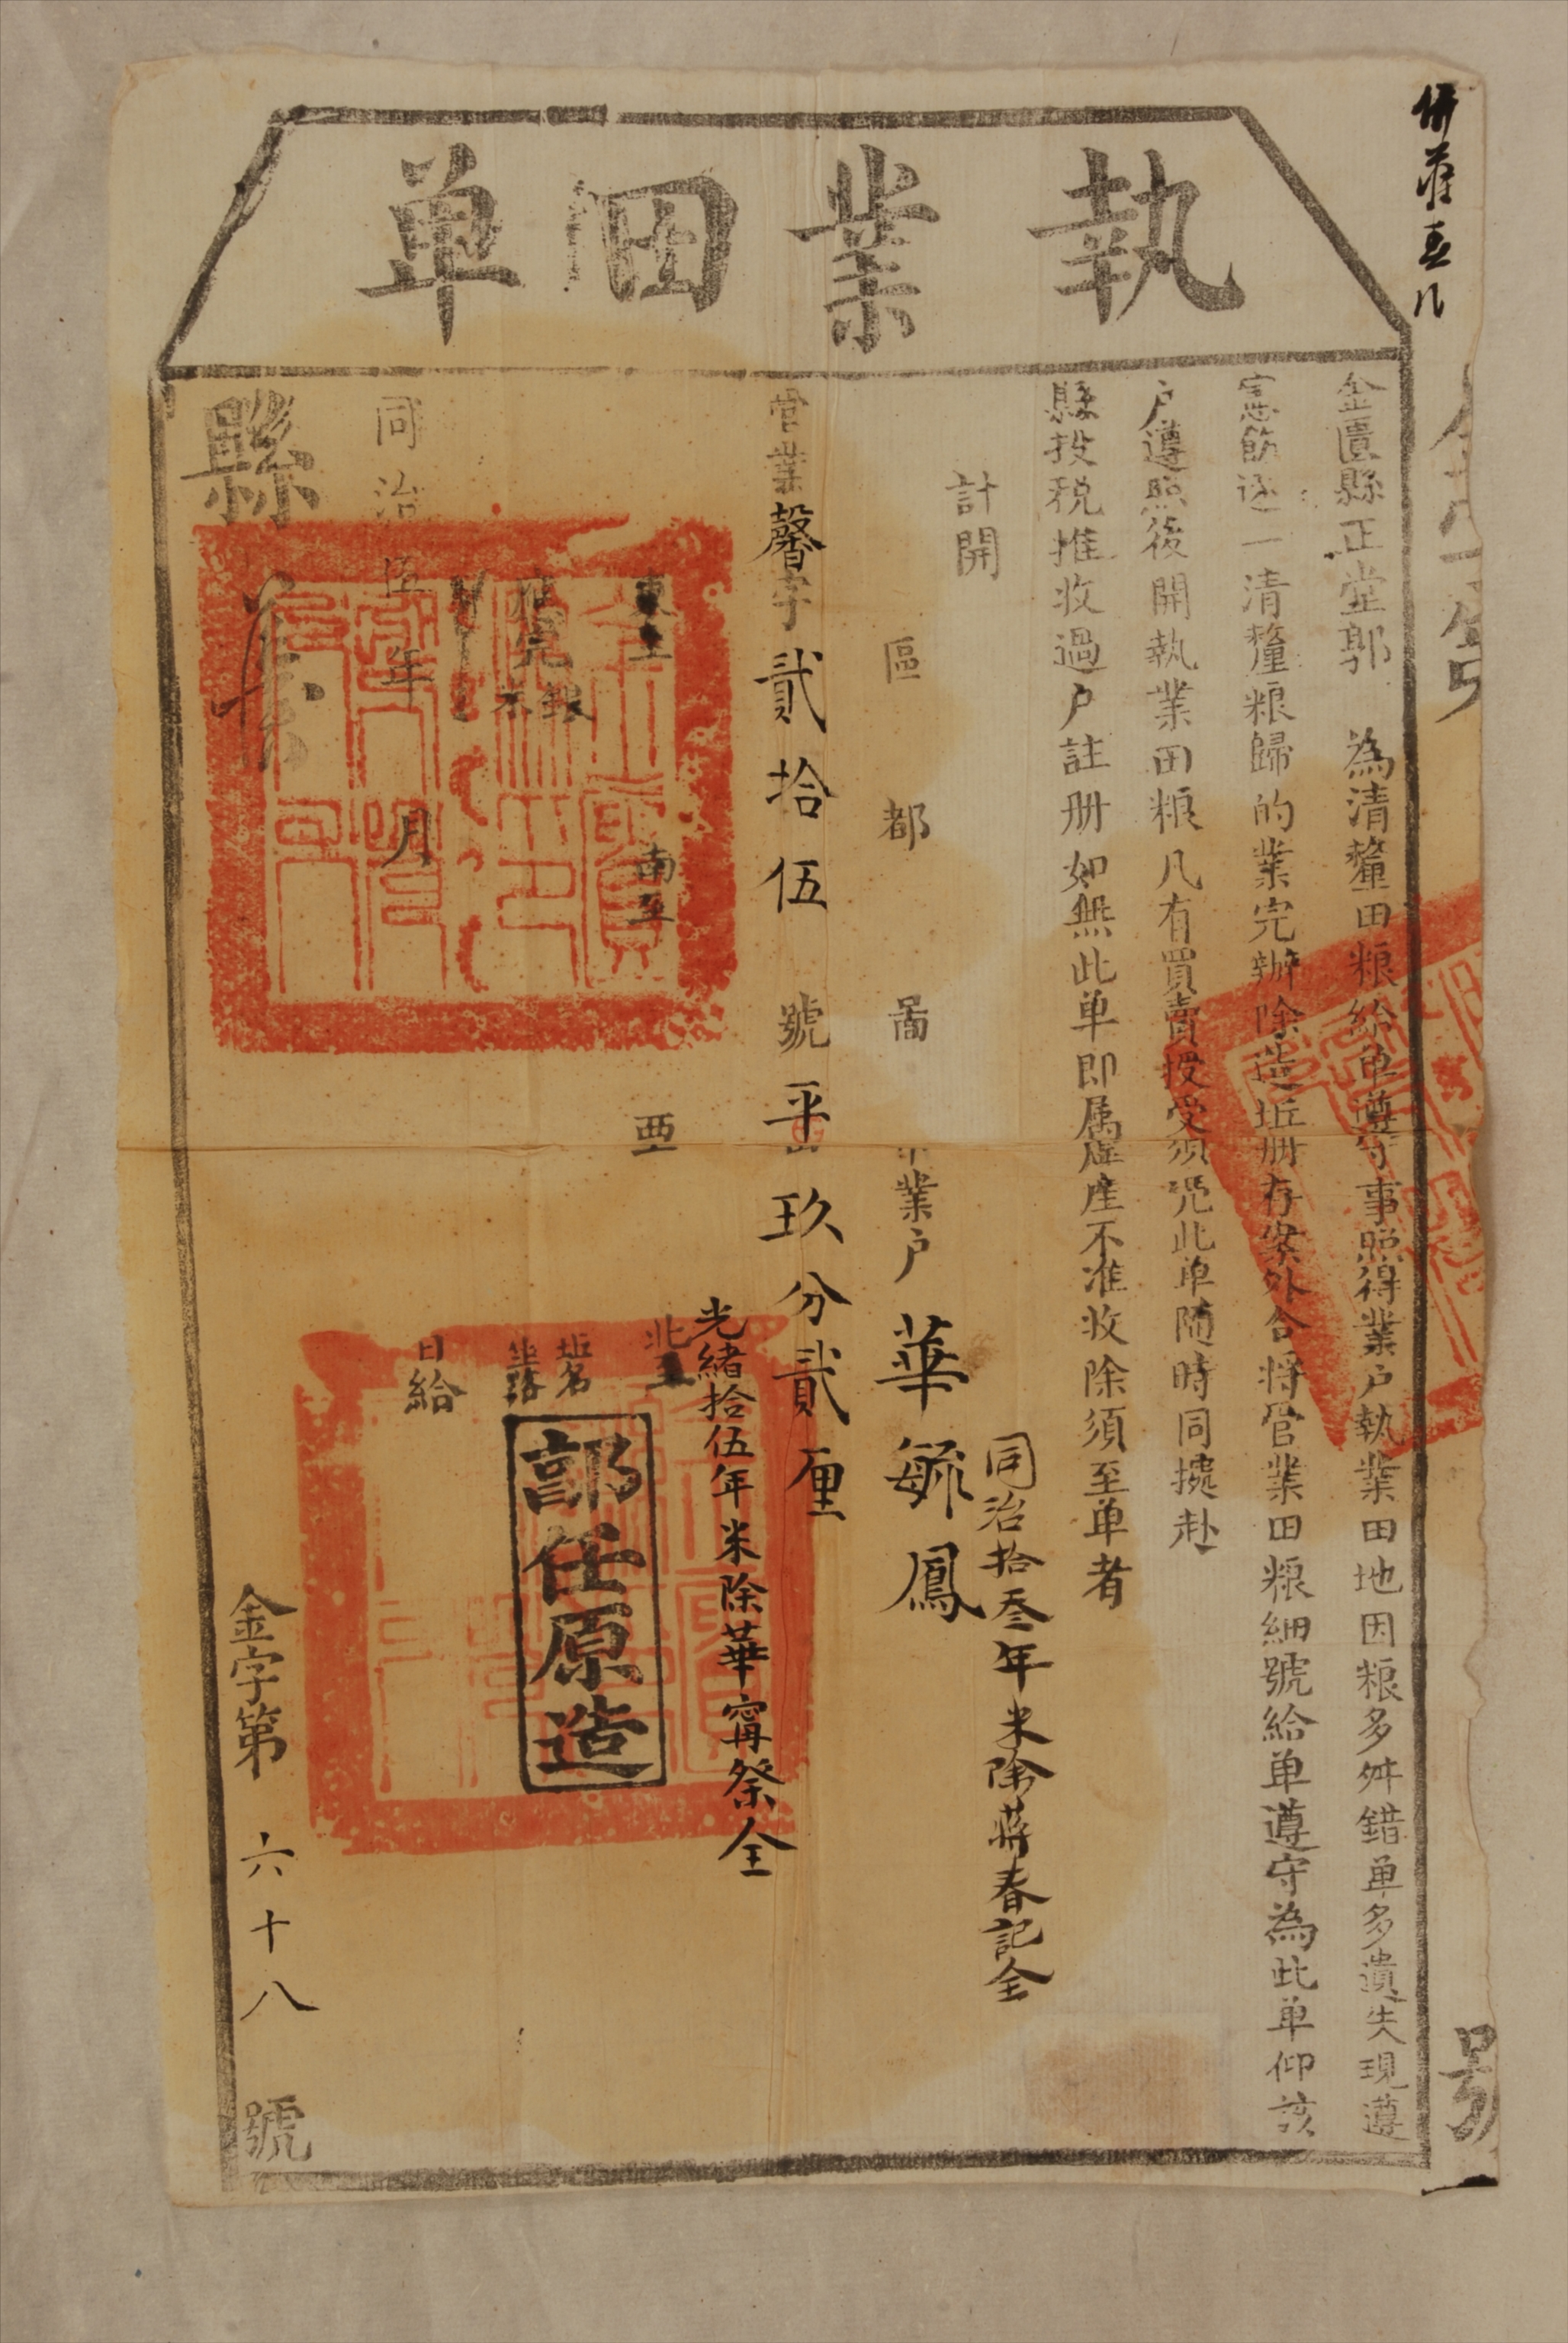 執業田单
金匱縣正堂郭　為清釐田粮給单遵守事照得業户執業田地因粮多舛錯单多遺失現遵
憲飭逐一清釐粮歸的業完辦除造坵册存案外合将管業田粮細號給单遵守為此单仰該
户遵照後開執業田粮凡有買賣授受須凴此单随時同摝赴
縣投税推收過户註册如無此单即属虚產不准收除須至单者
計開
同治拾叁年米除蔣春記仝
區　都　啚　業户華毓鳳
管業馨字貳拾伍號平玖分貳厘
光緒拾伍年米除華甯祭仝
東至　南至　西　北至
坵名
坐落
郭任原造
同治　年　月　日給
縣
金字第六十八號